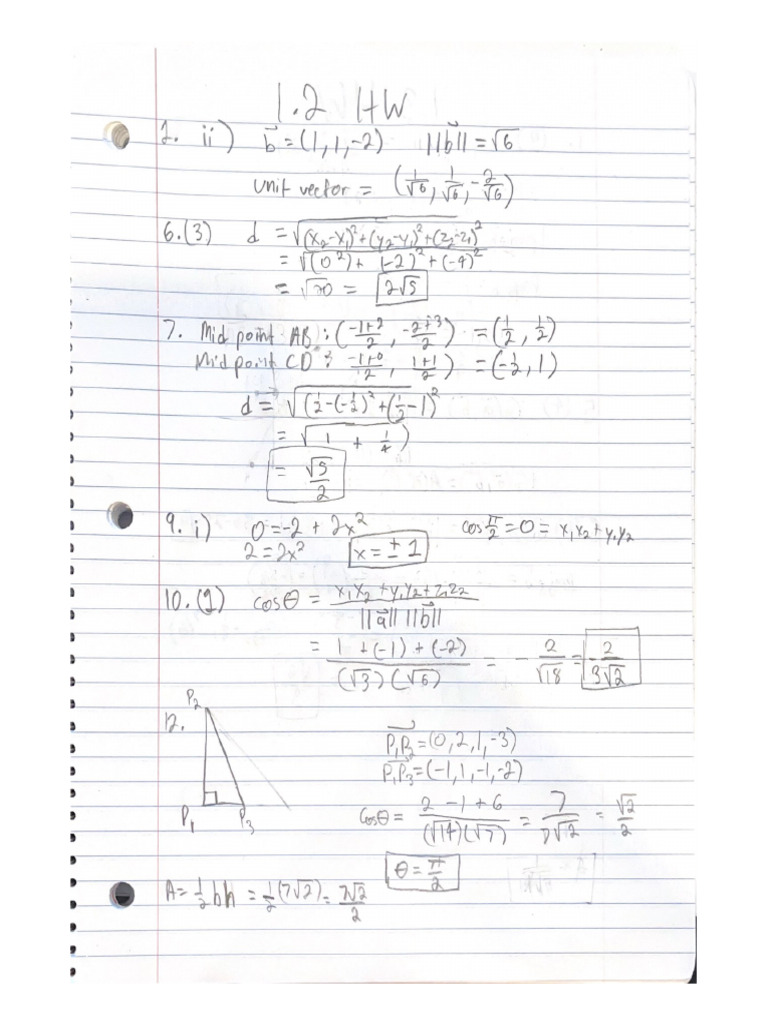 1.2 HW
1. ii) b⃗ = (1, 1, -2) ||b⃗|| = √6
unit vector = (1/√6, 1/√6, -2/√6)
6.(3) d = √(x₂-x₁)²+(y₂-y₁)²+(z₂-z₁)²
= √(0²)+ (-2)²+(-4)²
= √20 = 2√5
7. Midpoint AB : (-1+2/2, -2+3/2) = (1/2, 1/2)
Midpoint CD : -1+0/2, 1+1/2) = (-1/2, 1)
d = √(1/2-(-1/2)²+(1/2-1)²
= √1 + 1/4)
= √5/2
9. i) 0 = -2 + 2x² cos π/2 = 0 = x₁x₂+y₁y₂
2 = 2x² x = ± 1
10. (2) cosθ = x₁x₂+y₁y₂+z₁z₂/||a⃗|| ||b⃗||
= 1+(-1)+(-2)/(√3)(√6) = - 2/√18 = 2/3√2
P₂
12.
P₁P₂ = (0, 2, 1, -3)
P₁P₃ = (-1, 1, -1, -2)
P₁ P₃
cosθ = 2-1+6/(√14)(√7) = 7/7√2 = √2/2
θ = π/2
A = 1/2 bh = 1/2 (7√2) = 7√2/2